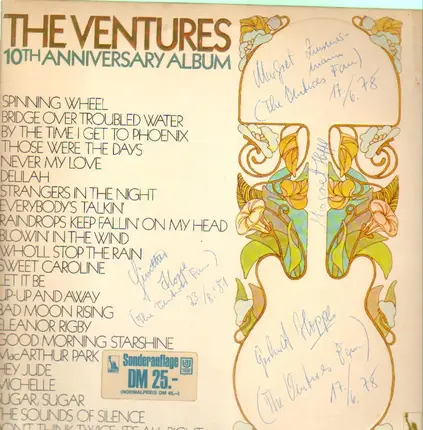 THE VENTURES
10TH ANNIVERSARY ALBUM
SPINNING WHEEL
BRIDGE OVER TROUBLED WATER
BY THE TIME I GET TO PHOENIX
THOSE WERE THE DAYS
NEVER MY LOVE
DELILAH
STRANGERS IN THE NIGHT
EVERYBODY'S TALKIN'
RAINDROPS KEEP FALLIN' ON MY HEAD
BLOWIN' IN THE WIND
WHO'LL STOP THE RAIN
SWEET CAROLINE
LET IT BE
UP-UP AND AWAY
BAD MOON RISING
ELEANOR RIGBY
GOOD MORNING STARSHINE
MacARTHUR PARK
HEY JUDE
MICHELLE
SUGAR, SUGAR
THE SOUNDS OF SILENCE
DON'T THINK TWICE, IT'S ALL RIGHT
Sonderauflage
DM 25.-
(NORMALPREIS DM 45,-)
Margret
(The Ventures Fan)
17/6.78
(The Ventures Fan)
(The Ventures Fan)
17/6.78